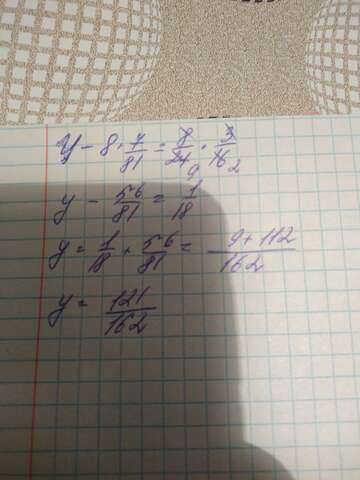 y - 8 · 7/81 = 8/24 9 · 3/16 2
y - 56/81 = 1/18
y = 1/18 + 56/81 = 9+112/162
y = 121/162